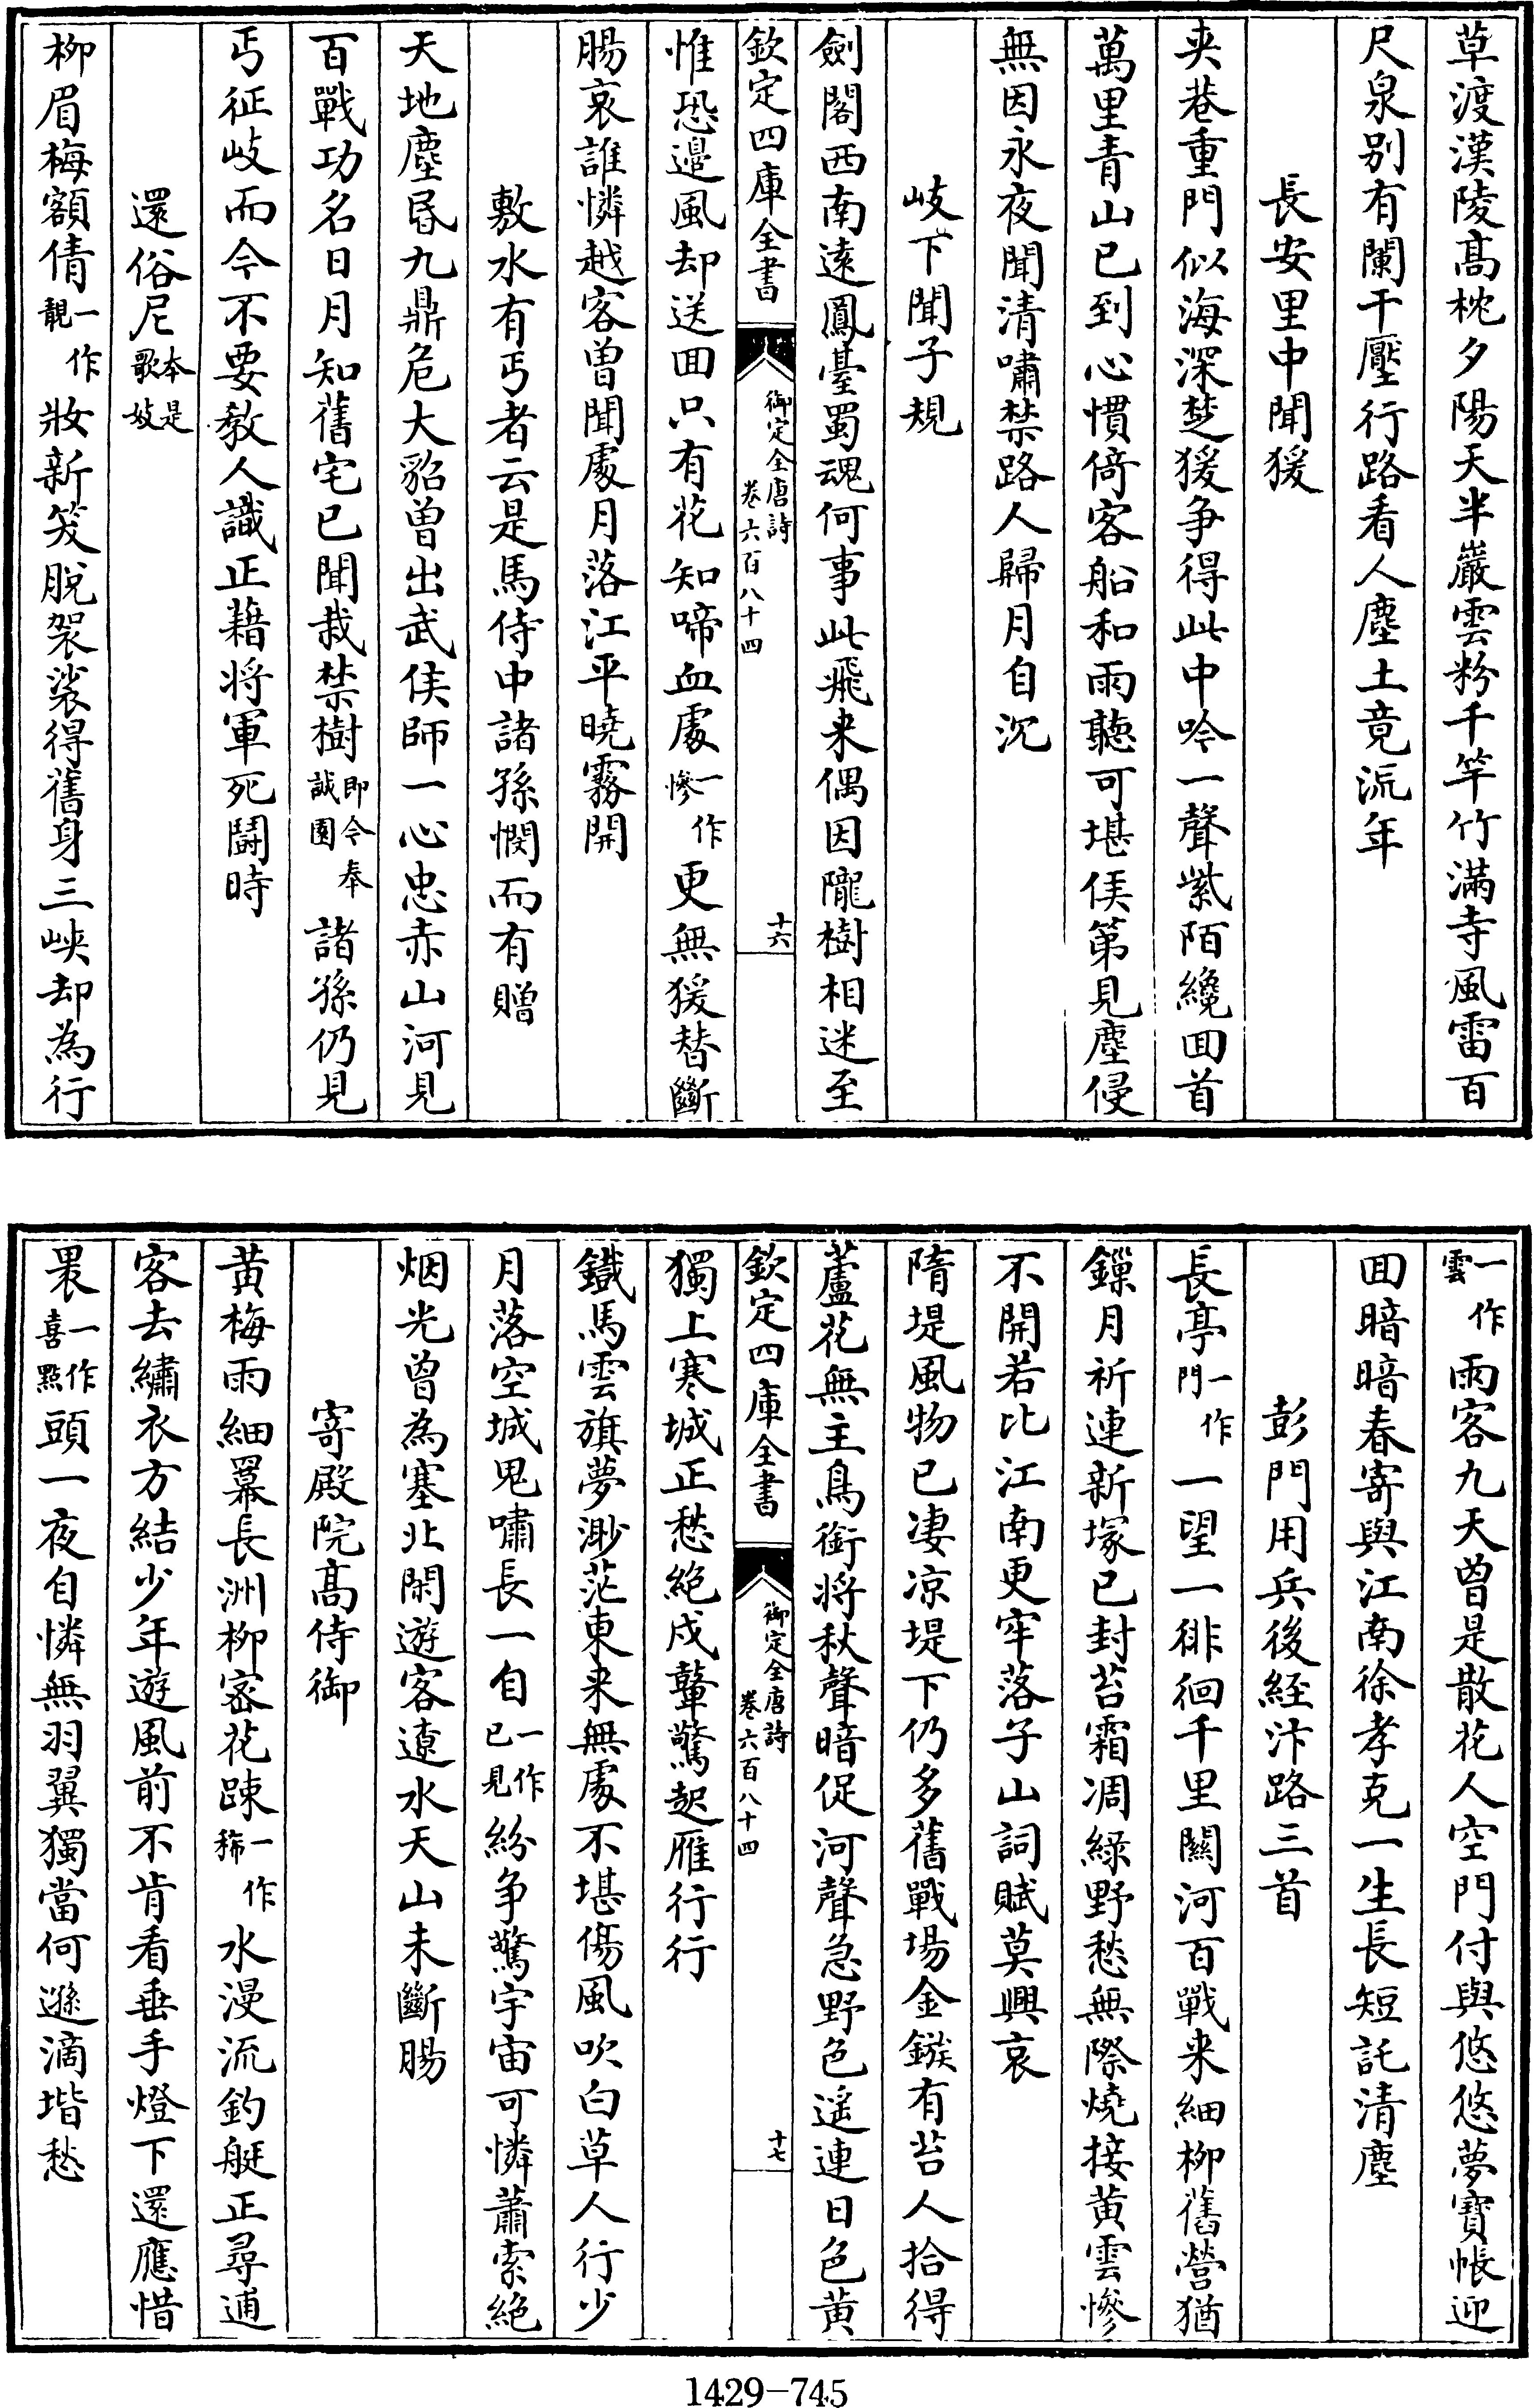 草渡漢陵高枕夕陽天半巖雲粉千竿竹滿寺風雷百
尺泉别有闌干壓行路看人塵土竟流年
長安里中聞猨
夾巷重門似海深楚猨争得此中吟一聲紫陌纔囬首
萬里青山已到心慣倚客船和雨聽可堪侯第見塵侵
無因永夜聞清嘯禁路人歸月自沉
岐下聞子規
劍閣西南遠鳳臺蜀魂何事此飛来偶因隴樹相迷至
欽定四庫全書
御定全唐詩
卷六百八十四
十六
惟恐邉風却送囬只有花知啼血處一作慘更無猨替斷
腸哀誰憐越客曽聞處月落江平曉霧開
敷水有丐者云是馬侍中諸孫憫而有贈
天地塵昬九鼎危大貂曽出武侯師一心忠赤山河見
百戰功名日月知舊宅已聞栽禁樹即今奉誠園諸孫仍見
丐征岐而今不要教人識正藉将軍死鬬時
還俗尼本是歌妓
柳眉梅額倩一作靚妝新笑脫袈裟得舊身三峽却為行
一作雲雨客九天曽是散花人空門付與悠悠夢寳帳迎
囬暗暗春寄與江南徐孝克一生長短託清塵
彭門用兵後經汴路三首
長亭一作門一望一徘徊千里關河百戰来細柳舊營猶
鏁月祈連新塚已封苔霜凋緑野愁無際燒接黄雲慘
不開若比江南更牢落子山詞賦莫興哀
隋堤風物已凄凉堤下仍多舊戰場金鏃有苔人拾得
蘆花無主鳥銜将秋聲暗促河聲急野色遥連日色黄
欽定四庫全書
御定全唐詩
卷六百八十四
十七
獨上寒城正愁絶戍鼙驚起雁行行
鐵馬雲旗夢渺茫東来無處不堪傷風吹白草人行少
月落空城鬼嘯長一自一作已見紛争驚宇宙可憐蕭索絶
烟光曽為塞北閑遊客遠水天山未斷腸
寄殿院髙侍御
黄梅雨細羃長洲柳宻花踈一作稀水漫流釣艇正尋逋
客去繡衣方結少年遊風前不肯看垂手燈下還應惜
褁一作喜點頭一夜自憐無羽翼獨當何遜滴堦愁
1429-745